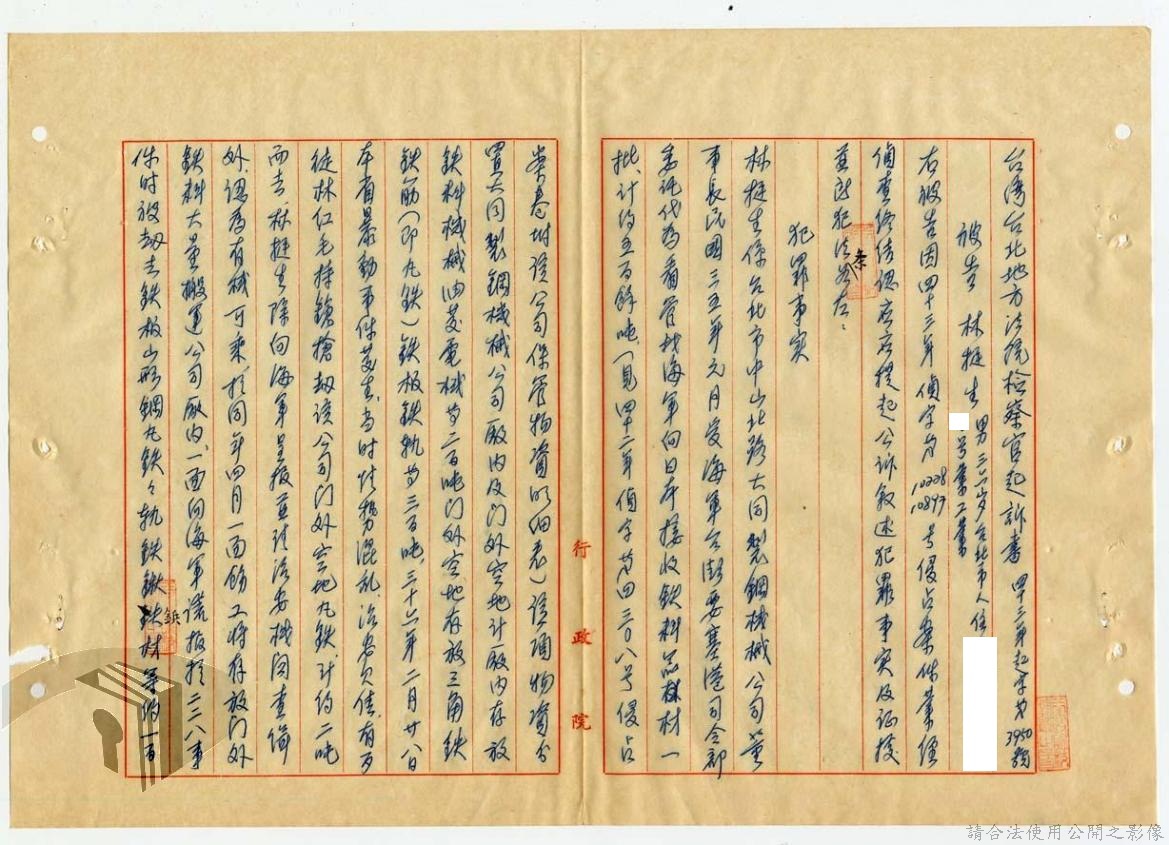 台湾台北地方法院检察官起訴書 四十三年起字第3950號
被告 林挺生 男三六岁台北市人住
号業工業
右被告因四十三年偵字第10228 10897号侵占案件業經
偵查終结認应提起公诉敘述犯罪事实及证據
並所犯法条如左：
犯罪事实
林挺生係台北市中山北路大同製鋼機械公司董
事長民國三五年元月受海軍台澎要塞港司令部
委託代為看管战海軍向日本接收鉄料器材一
批、计约五百餘吨、(見四十二年偵字第四三〇八号侵占
案卷附该公司保管物資明细表)该项物資分
置大同製鋼機械公司廠内及门外空地计廠内存放
鉄料機械機油茇電機等二百吨门外空地存放三角鉄
鉄筋(即丸鉄)鉄板鉄軌等三百吨、三十六年二月廿八日
本省暴動事件茇生、当时情势混乱、治安欠佳、有歹
徒林仁毛持鎗搶劫该公司门外空地丸鉄、计约二吨
而去、林挺生除向海軍呈报並請治安機関查缉
外、認為有機可乘、於同年四月一面飭工将存放门外
鉄料大量搬運公司廠内、一面向海軍謊报於二二八事
件时被劫去鉄板山形鋼丸鉄々軌鉄鍬鉄材等约一百
行政院
請合法使用公開之影像